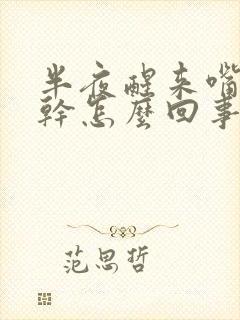 半夜醒来嘴
幹怎麼回事
范思哲